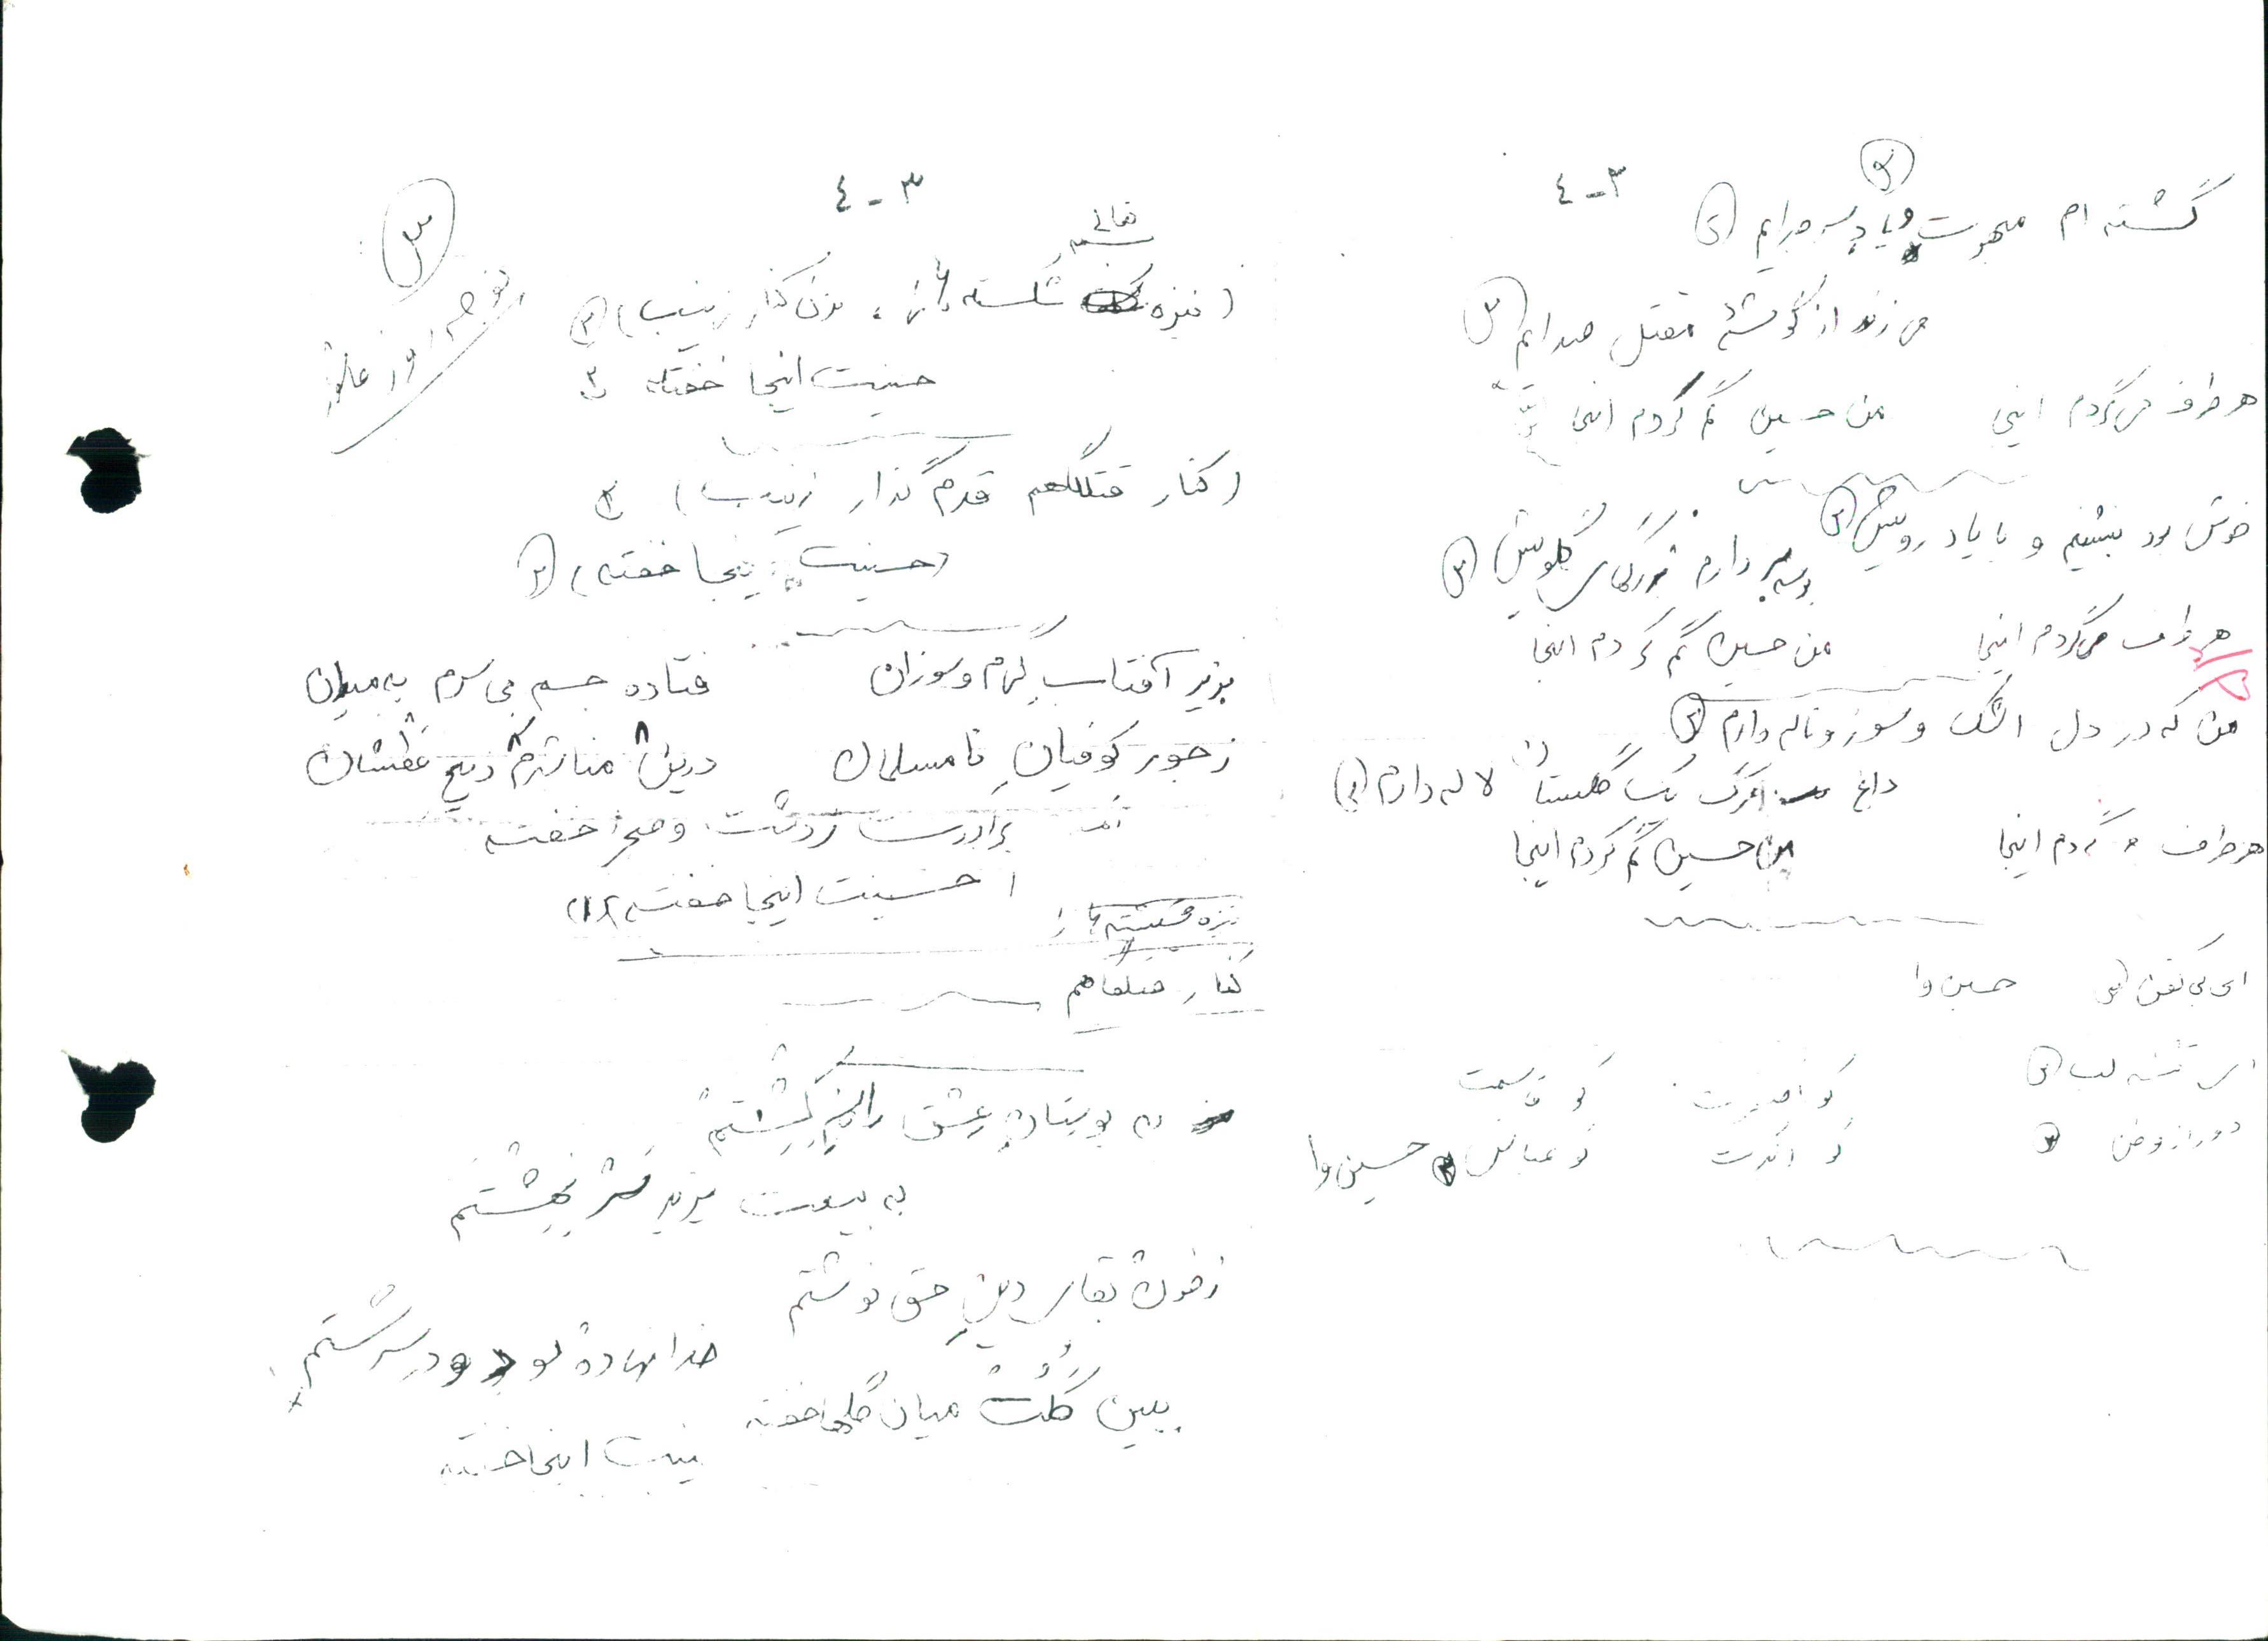 ۳-۴
گشته ام مبهوت و یا
می زند از گوشهٔ مقتل صدایم (۳)
هر طرف می گردم اینجا من حسین گم کردم اینجا
خوش بود بنشینم و با یاد رویش (۲)
بوسه بردارم ز رگهای گلویش (۳)
هر طرف می گردم اینجا من حسین گم کردم اینجا
من که در دل اشک و سوز و ناله دارم (۲)
داغ مرگ یک گلستان لاله دارم (۲)
هر طرف می گردم اینجا من حسین گم کردم اینجا
ای بی کفن حسین وا
ای تشنه لب کو اصغرت کو قاسمت
دور از وطن کو اکبرت کو عباس حسین وا
۳-۴
۳
نوحه روز عاشورا
خانم
(نیزه شکسته ها را، بزن کنار زینب) (۲)
حسینت اینجا خفته ۲
(کنار قتلگاهم قدم گذار زینب) ۲
(حسینت اینجا خفته) (۲)
بزیر آفتاب گرم و سوزان فتاده جسم بی سرم به میدان
ز جور کوفیان نامسلمان درین منا شدم ذبیح عطشان
برادرت در دشت و صحرا خفته
حسینت اینجا خفته (۲)
نیزه شکسته ها را
کنار قتلگاهم
به بوستان عشق لاله کشتم
به بیعت یزید سر نهشتم
ز خون بقای دین حق نوشتم
خدا نهاده در سرشتم
ببین گلت میان گلها خفته
حسینت اینجا خفته